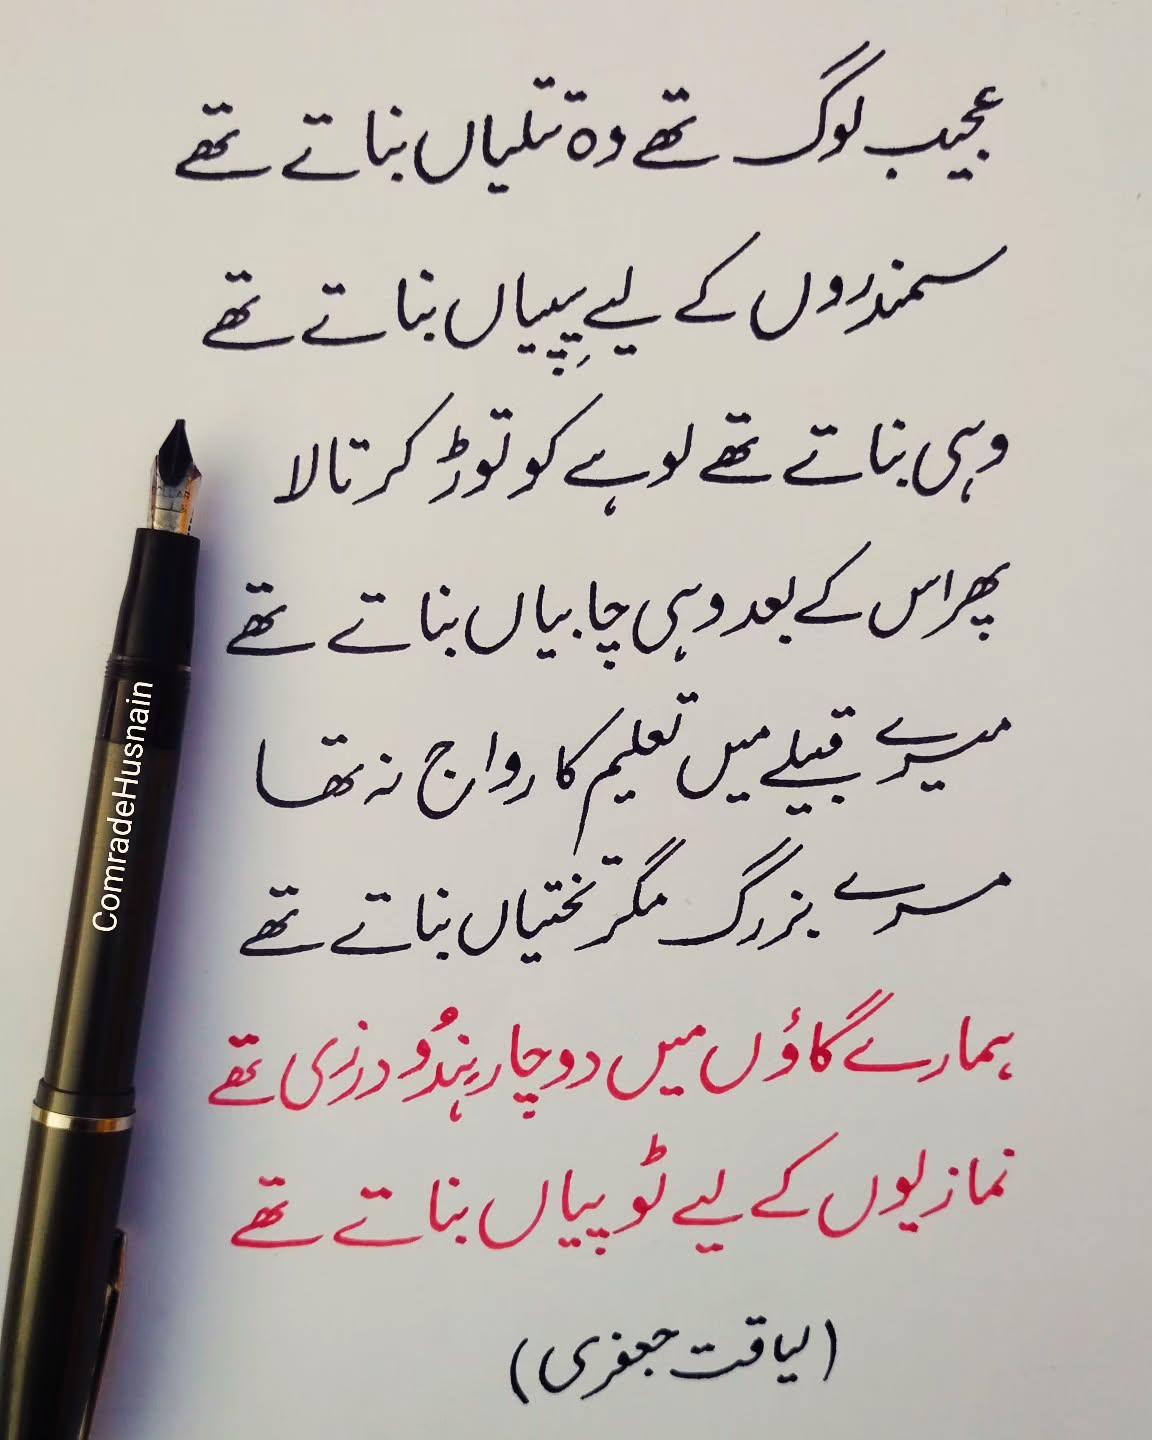 عجیب لوگ تھے وہ تتلیاں بناتے تھے
سمندروں کے لیے سِیپیاں بناتے تھے
وہی بناتے تھے لوہے کو توڑ کر تالا
پھر اس کے بعد وہی چابیاں بناتے تھے
میرے قبیلے میں تعلیم کا رواج نہ تھا
مرے بزرگ مگر تختیاں بناتے تھے
ہمارے گاؤں میں دو چار ہِندُو درزی تھے
نمازیوں کے لیے ٹوپیاں بناتے تھے
(لیاقت جعفری)
ComradeHusnain